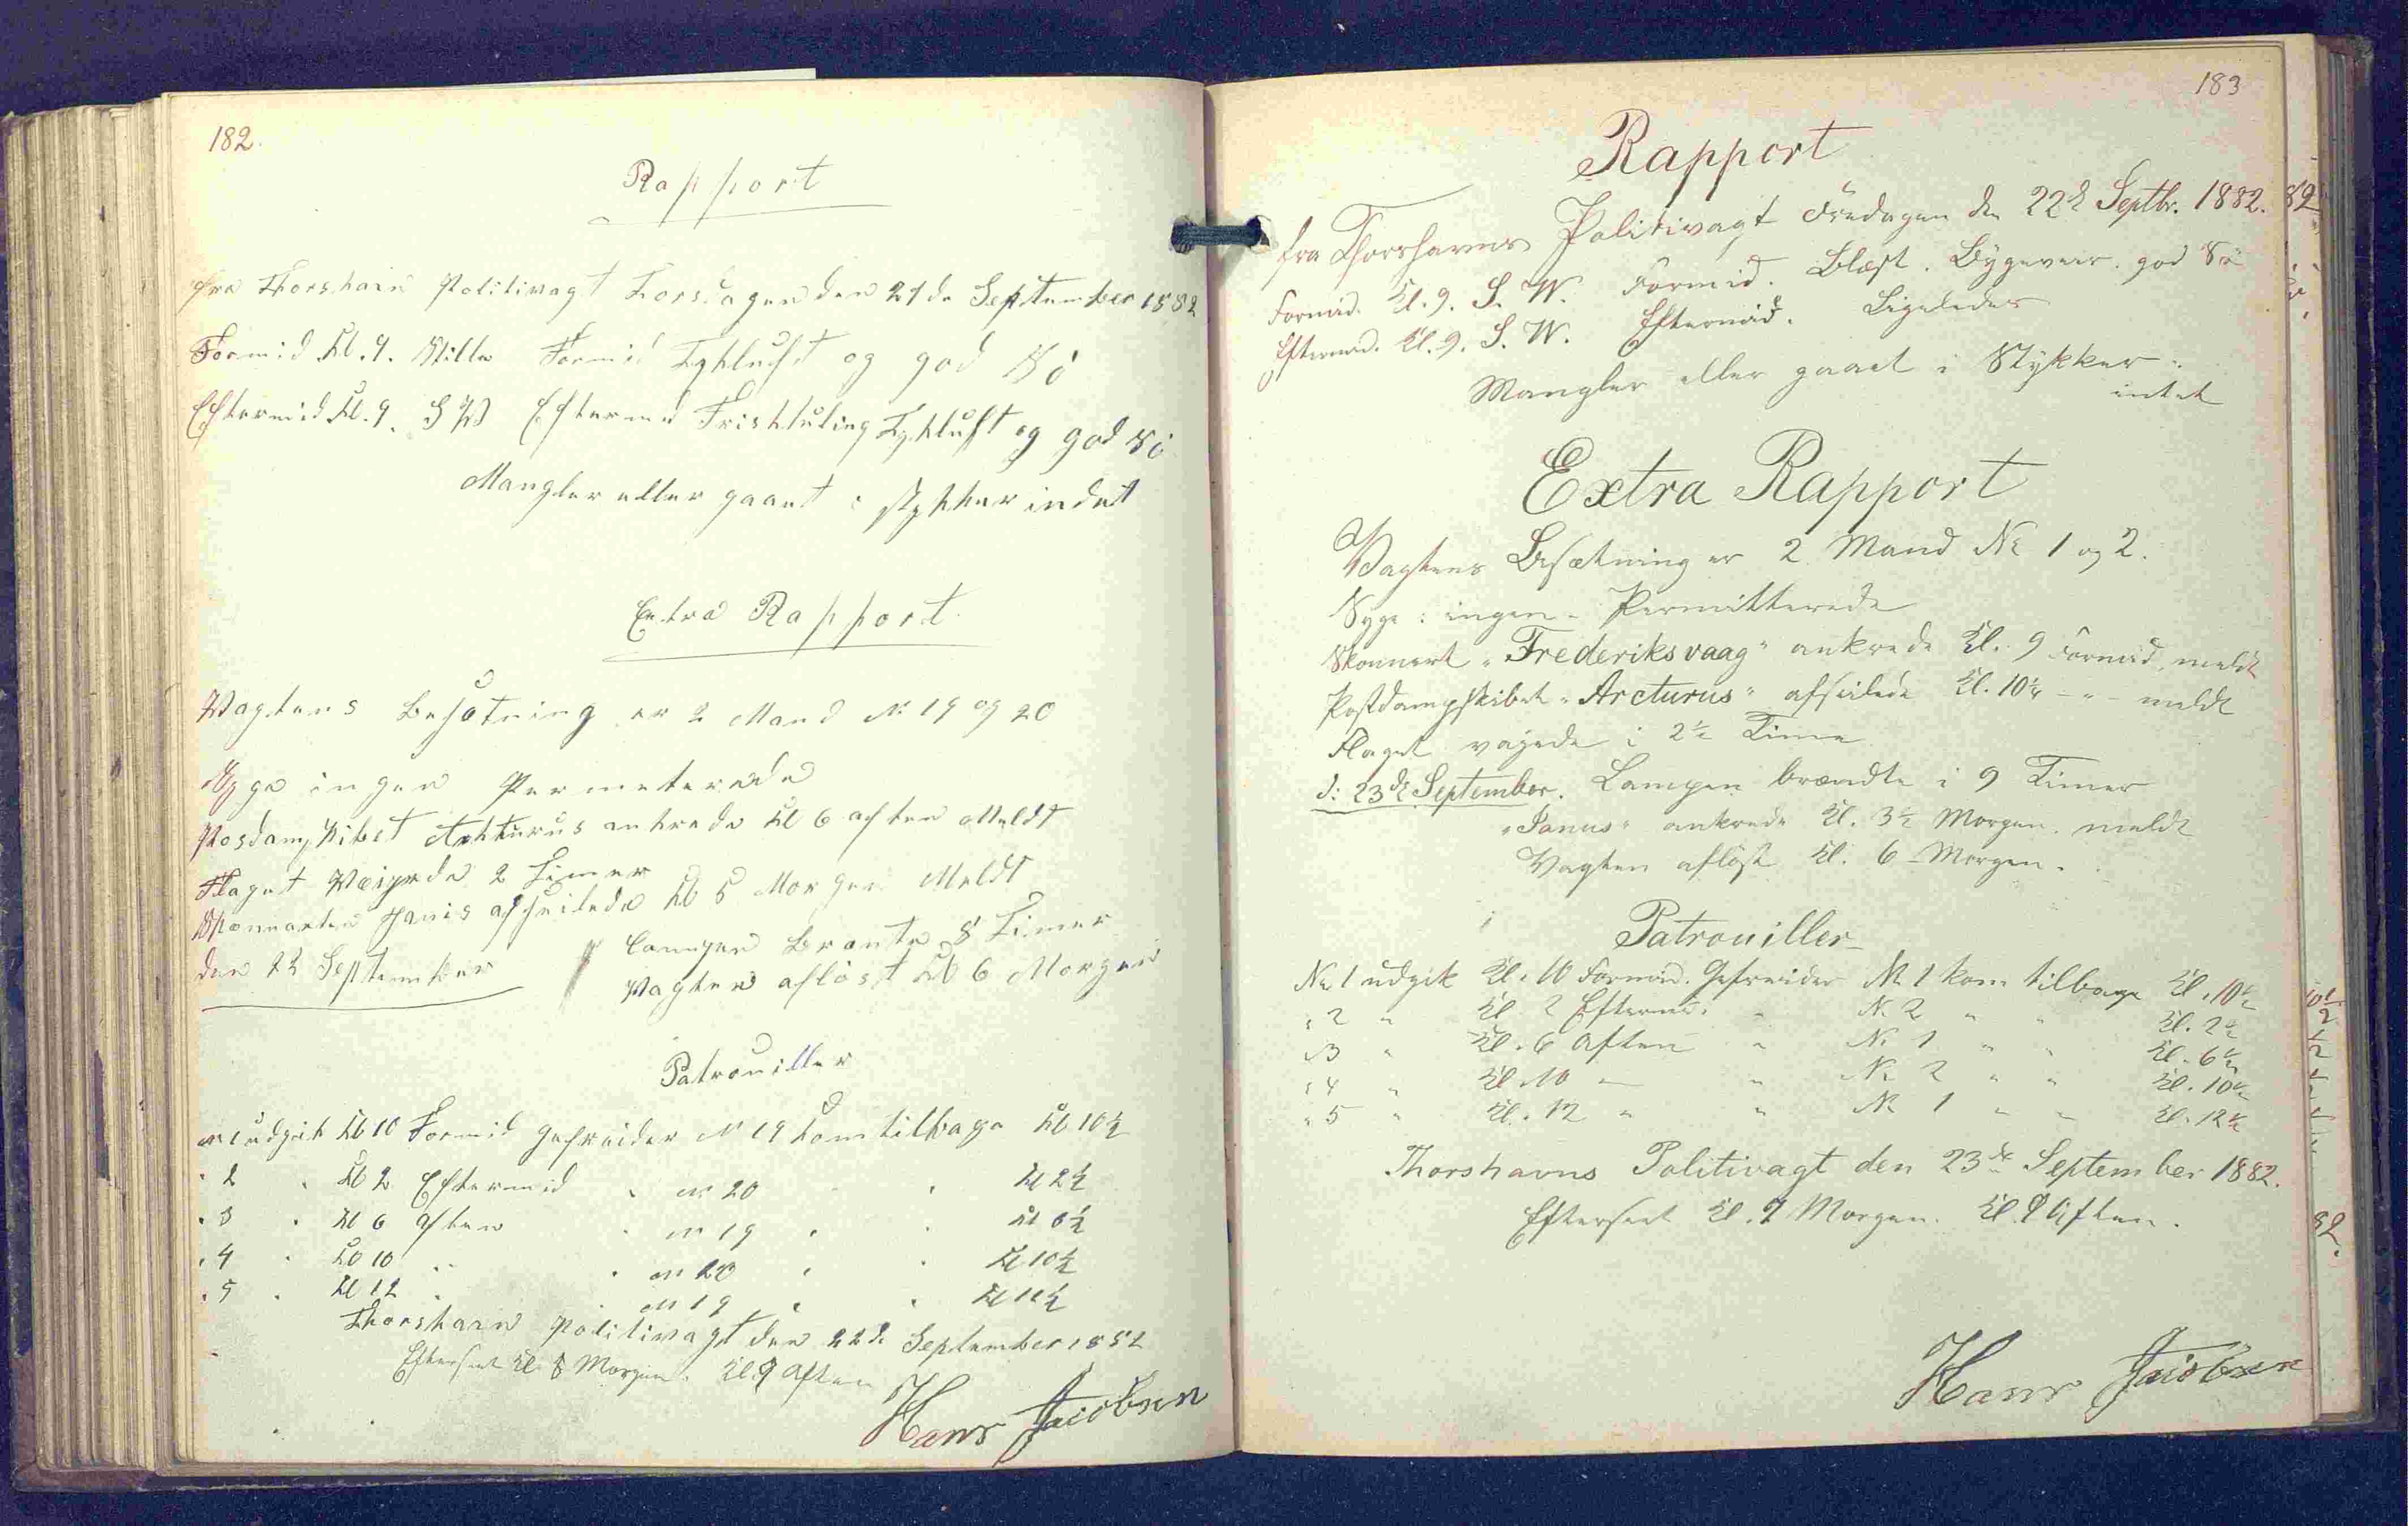 182.
Rapport
fra Thorshavn Politivagt Torsdagen den 21de September 1882
Formid Kl. 9. Stille Formid Tykluft og god Sö
Eftermid Kl. 9. S W Eftermd Friskkuling Tykluft og god Sö
Mangler eller gaaet i stykker indet
Extra Rapport
Vagtens Besötning er 2 Mand No 19 og 20
Syge ingen Permeterede
Posdampskibet Arkturus ankrede Kl 6 aften Meldt
Flaget Waiyede 2 Timer
Skonnarten Janis afseilede Kl 5 Morgen Meldt
den 22 September Lampen Brante 8 Timer
Vagten aflöst Kl 6 Morgen
Patrouiller
No 1 udgik Kl 10 Formid Gefreider No 19 kom tilbage Kl 10½
" 2 " Kl 2 Eftermid " No 20 " " Kl 2½
" 3 " Kl 6 Aften " No 19 " " Kl 6½
" 4 " Kl 10 " " No 20 " " Kl 10½
" 5 " Kl 12 " " No 19 " " Kl 12½
Thorshavn Politivagt den 22de September 1882
Efterseet Kl. 8 Morgen. Kl. 9 Aften
Hans Jacobsen
183
Rapport
fra Thorshavns Politivagt Fredagen den 22de Septbr. 1882.
Formid. Kl. 9. S. W. Formid. Blæst. Bygeveir. god Sö
Eftermid. Kl. 9. S. W. Eftermid. Ligeledes
Mangler eller gaaet i Stykker:
intet
Extra Rapport
Vagtens Besætning er 2 Mand No 1 og 2.
Syge: ingen - Permitterede
Skonnert "Frederiksvaag" ankrede Kl. 9 Formid. meldt
Postdampskibet "Arcturus" afseilede Kl. 10½ - " - meldt
Flaget vajede i 2½ Time
d: 23de September. Lampen brændte i 9 Timer
"Janus" ankrede Kl. 3½ Morgen. meldt
Vagten aflöst Kl. 6 Morgen.
Patrouiller
No 1 udgik Kl. 10 Formid. Gefreider No 1 kom tilbage Kl. 10½
" 2 " Kl 2 Eftermid. " No 2 " " Kl. 2½
" 3 " Kl. 6 Aften " No 1 " " Kl. 6½
" 4 " Kl. 10 " " No 2 " " Kl. 10½
" 5 " Kl. 12 " " No 1 " " Kl. 12½
Thorshavns Politivagt den 23de September 1882.
Efterseet Kl. 9 Morgen. Kl. 9 Aften.
Hans Jacobsen